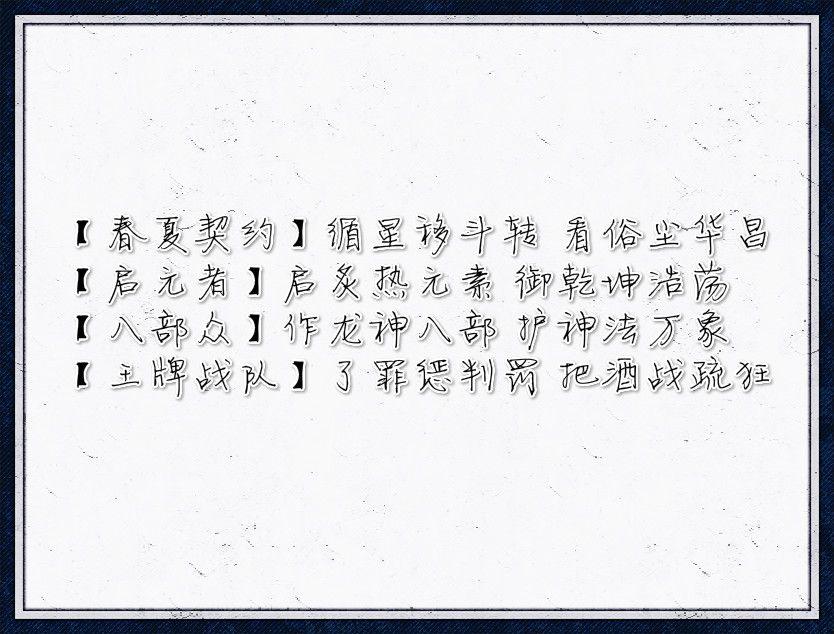 【春夏契约】循星移斗转 看俗尘华昌
【启元者】启炙热元素 御乾坤浩荡
【八部众】作龙神八部 护神法万象
【王牌战队】了罪惩判罚 把酒战疏狂